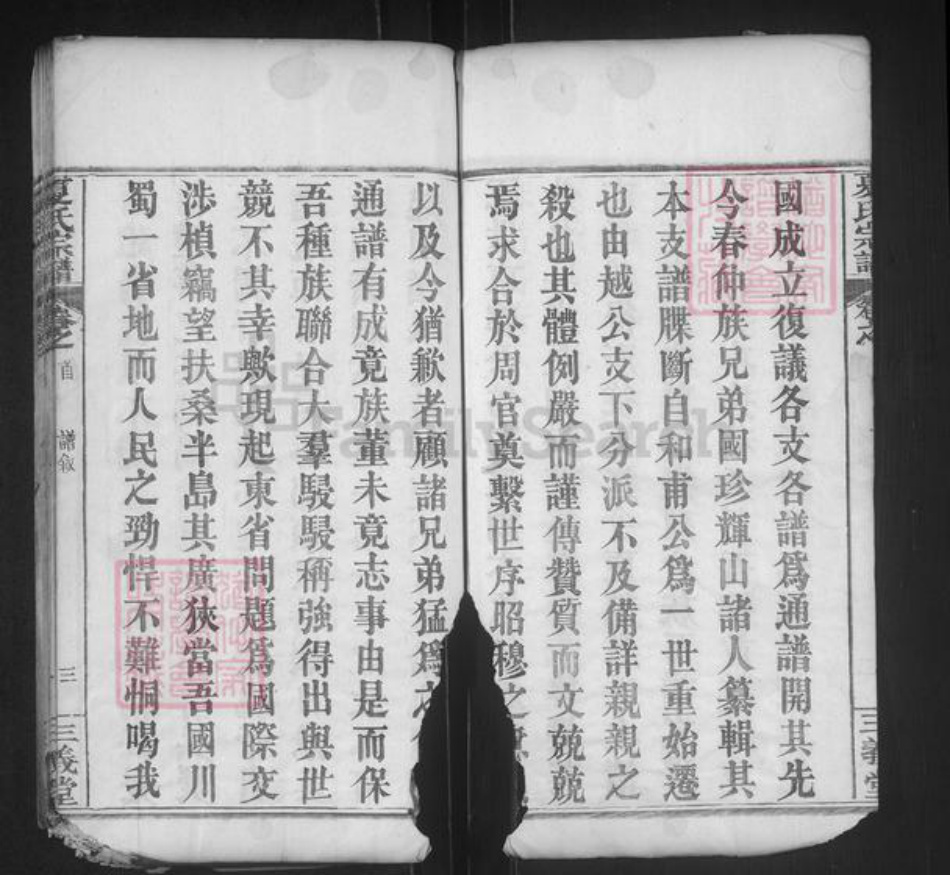 國成立復議各支各譜爲通譜開其先
今春仲族兄弟國珍輝山諸人纂輯其
本支譜牒斷自和甫公爲一世重始遷
也由越公支下分派不及備詳親親之
殺也其體例嚴而謹傳贊質而文兢兢
焉求合於周官奠繫世序昭穆之
以及今猶歉者顧諸兄弟猛爲
通譜有成竟族董未竟志事由是而保
吾種族聯合大羣駸駸稱強得出與世
競不其幸歟現起東省問題爲國際交
涉楨竊望扶桑半島其廣狹當吾國川
蜀一省地而人民之勁悍不難恫喝我
夏氏宗譜
卷之
首
譜敘
三
三義堂
夏氏宗譜
卷之
三義堂
FamilySearch